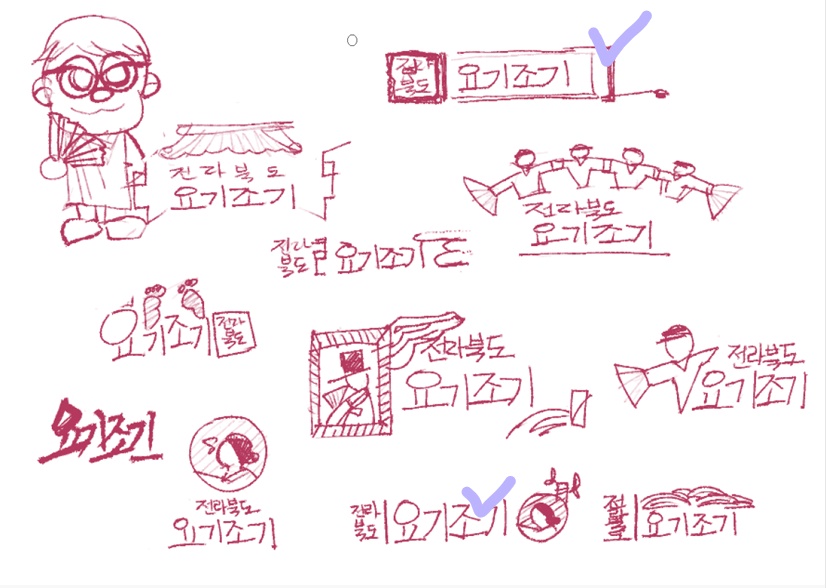 전라
북도
요기조기
전라북도
요기조기
전라북도
요기조기
전라
북도
요기조기
요기조기
전라
북도
전라북도
요기조기
전라북도
요기조기
요기조기
전라북도
요기조기
전라
북도
요기조기
전라
북도
요기조기